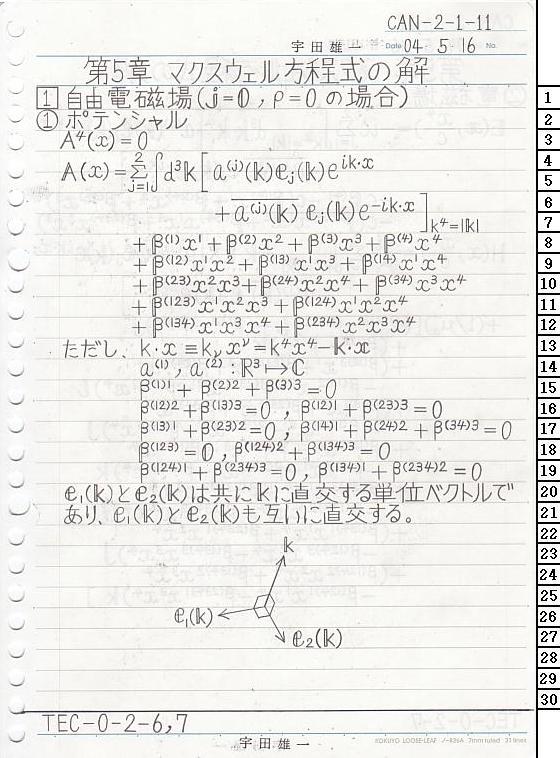 CAN-2-1-11
宇田雄一 Date 04 5 16 No.
第5章 マクスウェル方程式の解
1 自由電磁場(j=0, ρ=0の場合)
① ポテンシャル
A⁴(x)=0
𝔸(x)=Σ_{j=1}^{2}∫d³𝕜[a⁽ʲ⁾(𝕜)𝕖ⱼ(𝕜)e^{ik·x}
+ \overline{a⁽ʲ⁾(𝕜)} 𝕖ⱼ(𝕜)e^{-ik·x}]_{k⁴=|𝕜|}
+β⁽¹⁾x¹+β⁽²⁾x²+β⁽³⁾x³+β⁽⁴⁾x⁴
+β⁽¹²⁾x¹x²+β⁽¹³⁾x¹x³+β⁽¹⁴⁾x¹x⁴
+β⁽²³⁾x²x³+β⁽²⁴⁾x²x⁴+β⁽³⁴⁾x³x⁴
+β⁽¹²³⁾x¹x²x³+β⁽¹²⁴⁾x¹x²x⁴
+β⁽¹³⁴⁾x¹x³x⁴+β⁽²³⁴⁾x²x³x⁴
ただし、k·x≡k_ν x^ν=k⁴x⁴−𝕜·𝕩
a⁽¹⁾, a⁽²⁾:ℝ³↦ℂ
β⁽¹⁾¹+β⁽²⁾²+β⁽³⁾³=0
β⁽¹²⁾²+β⁽¹³⁾³=0, β⁽¹²⁾¹+β⁽²³⁾³=0
β⁽¹³⁾¹+β⁽²³⁾²=0, β⁽¹⁴⁾¹+β⁽²⁴⁾²+β⁽³⁴⁾³=0
β⁽¹²³⁾=0, β⁽¹²⁴⁾²+β⁽¹³⁴⁾³=0
β⁽¹²⁴⁾¹+β⁽²³⁴⁾³=0, β⁽¹³⁴⁾¹+β⁽²³⁴⁾²=0
𝕖₁(𝕜)と𝕖₂(𝕜)は共に𝕜に直交する単位ベクトルで
あり、𝕖₁(𝕜)と𝕖₂(𝕜)も互いに直交する。
𝕜
𝕖₁(𝕜)
𝕖₂(𝕜)
TEC-0-2-6,7
宇田雄一
KOKUYO LOOSE-LEAF ノ-836A 7mm ruled 31 lines
1
2
3
4
5
6
7
8
9
10
11
12
13
14
15
16
17
18
19
20
21
22
23
24
25
26
27
28
29
30